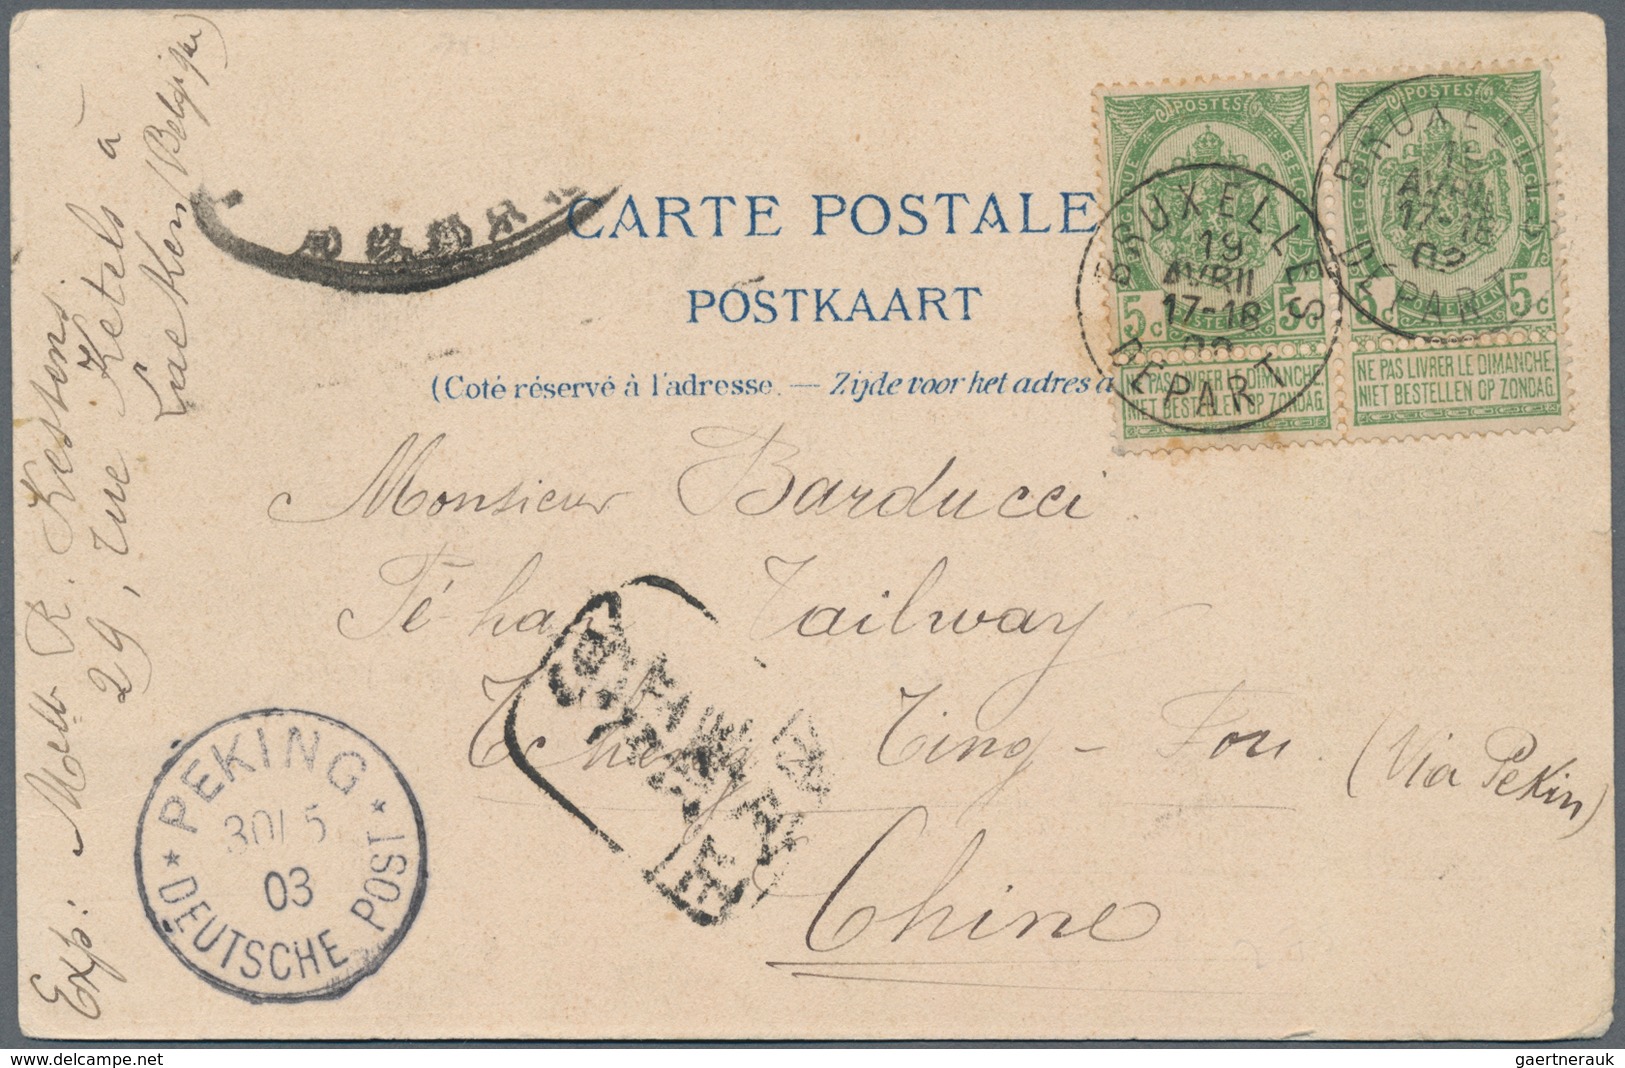 CARTE POSTALE
POSTKAART
(Coté réservé à l'adresse. — Zijde voor het adres a
Monsieur Barducci
Railway
Ting - Fou
(Via Pekin)
Chine
Exp: R. Kestens
29, rue Ketels à
Laeken (Belgique)
BRUXELLES
19
AVRIL
17-18
DEPART
BRUXELLES
AVRIL
17-18
DEPART
POSTES
5c 5c
NE PAS LIVRER LE DIMANCHE.
NIET BESTELLEN OP ZONDAG.
POSTES
5c 5c
NE PAS LIVRER LE DIMANCHE.
NIET BESTELLEN OP ZONDAG.
* PEKING *
30/5
03
DEUTSCHE POST
delcampe.net
gaertnerauk